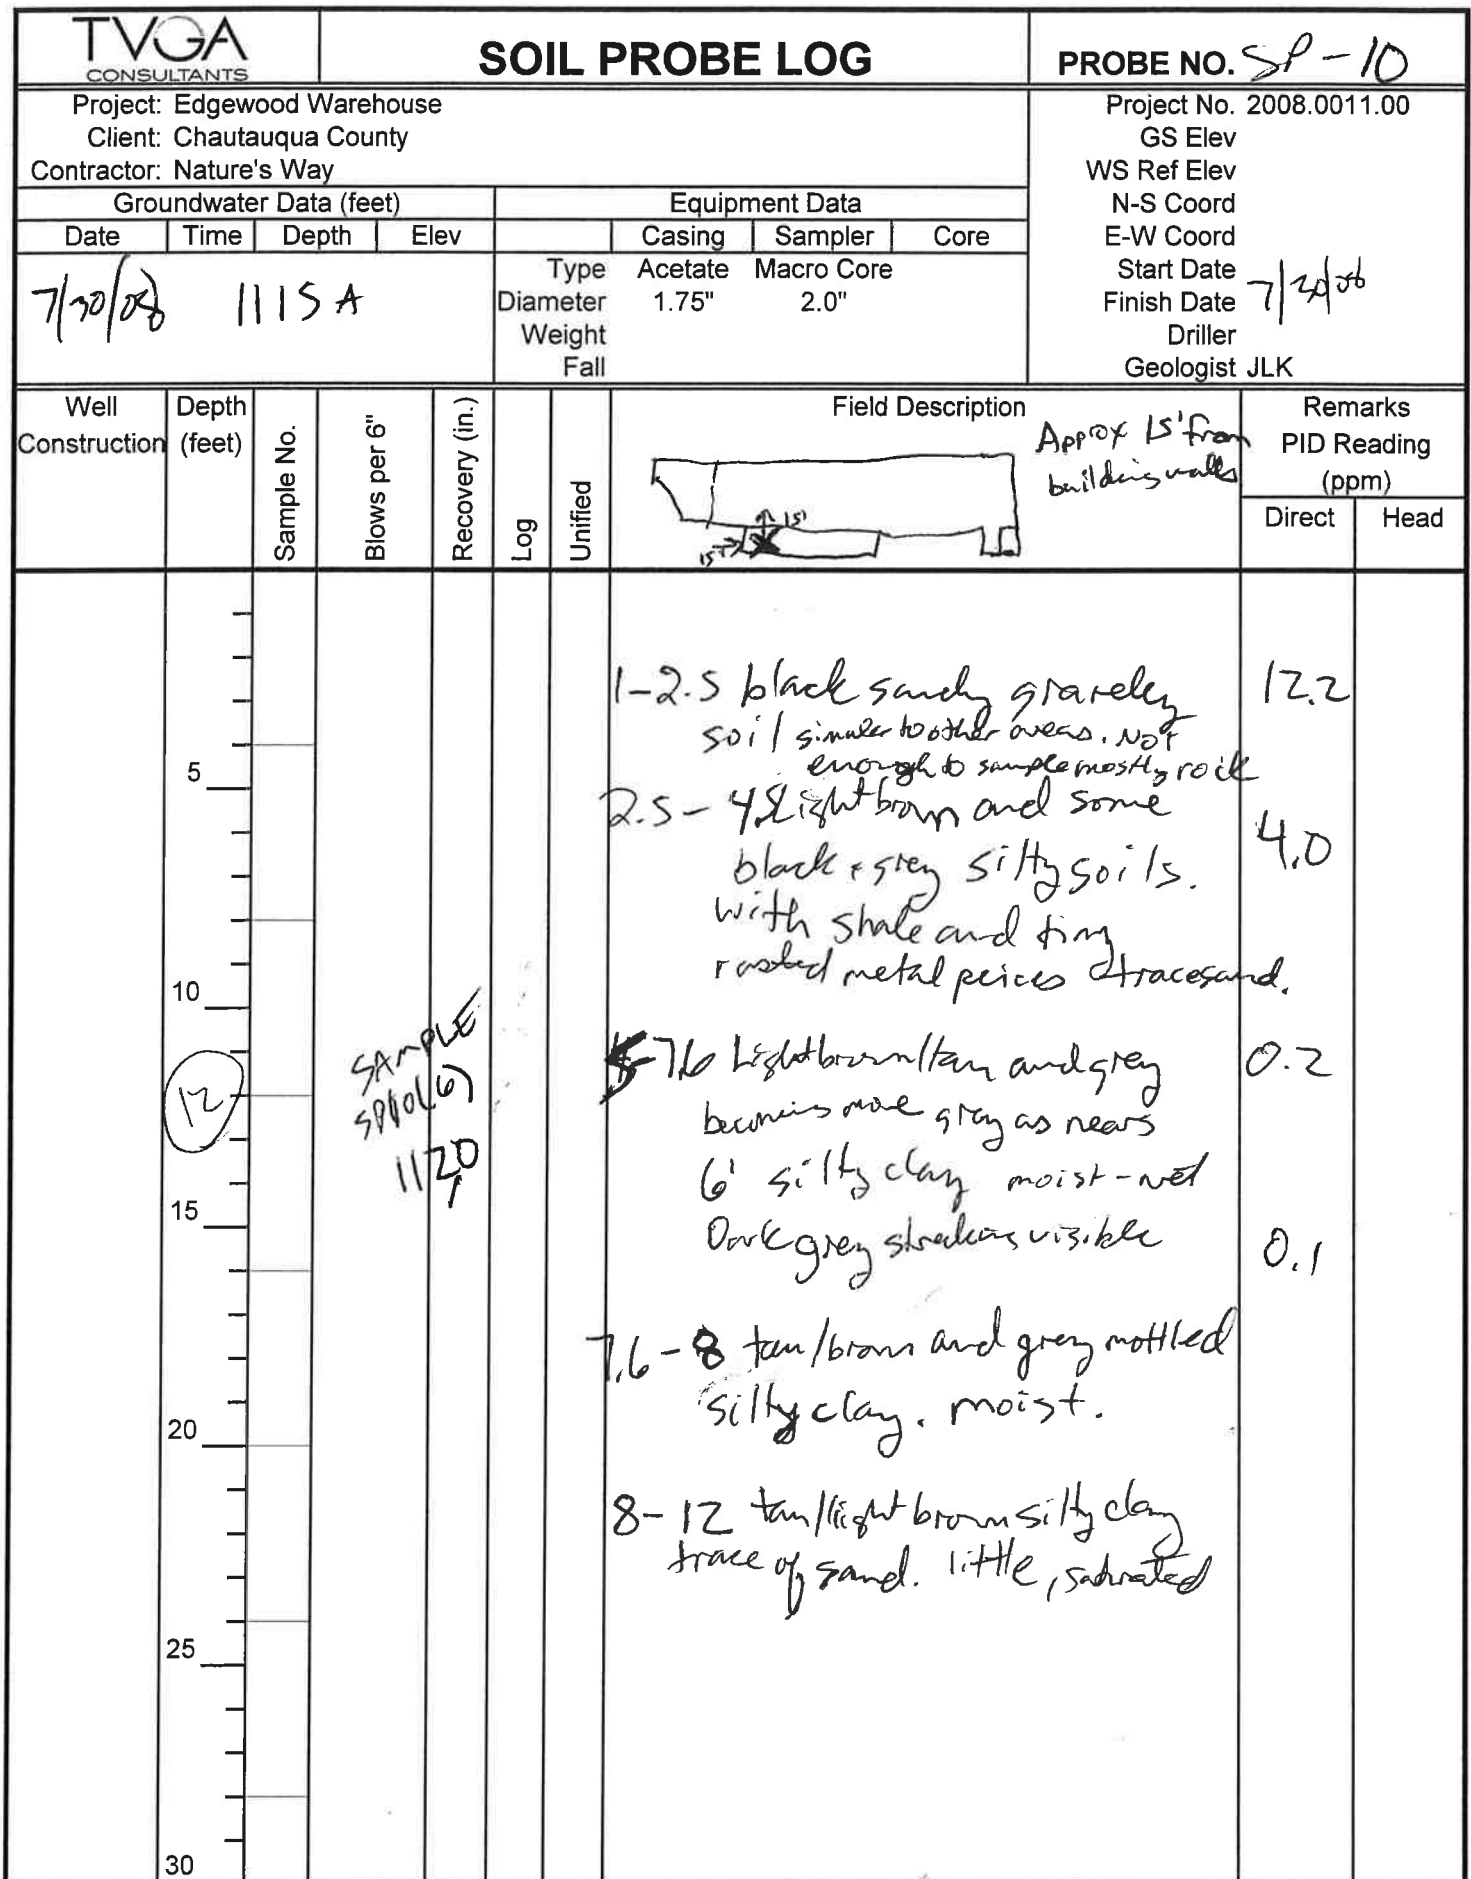 TVGA
CONSULTANTS
SOIL PROBE LOG
PROBE NO. SP-10
Project: Edgewood Warehouse
Client: Chautauqua County
Contractor: Nature's Way
Project No. 2008.0011.00
GS Elev
WS Ref Elev
N-S Coord
E-W Coord
Start Date
Finish Date 7/30/08
Driller
Geologist JLK
Groundwater Data (feet)
Date Time Depth Elev
7/30/08 1115 A
Equipment Data
Casing Sampler Core
Type Acetate Macro Core
Diameter 1.75" 2.0"
Weight
Fall
Well Construction
Depth (feet)
Sample No.
Blows per 6"
Recovery (in.)
Log
Unified
Field Description
Approx 15' from
building walls
15'
15'
Remarks
PID Reading
(ppm)
Direct Head
1-2.5 black sandy graveley 12.2
soil similar to other areas. Not
enough to sample mostly rock
2.5- light brown and some
black + grey silty soils. 4.0
with shale and tiny
rusted metal peices trace sand.
-7.6 Light brown/tan and grey 0.2
becomes more gray as nears
6' silty clay moist-wet
Dark grey streaking visible 0.1
7.6-8 tan/brown and grey mottled
silty clay. moist.
8-12 tan/light brown silty clay
trace of sand. little, saturated
SAMPLE
SP10(6)
1120
5
10
12
15
20
25
30